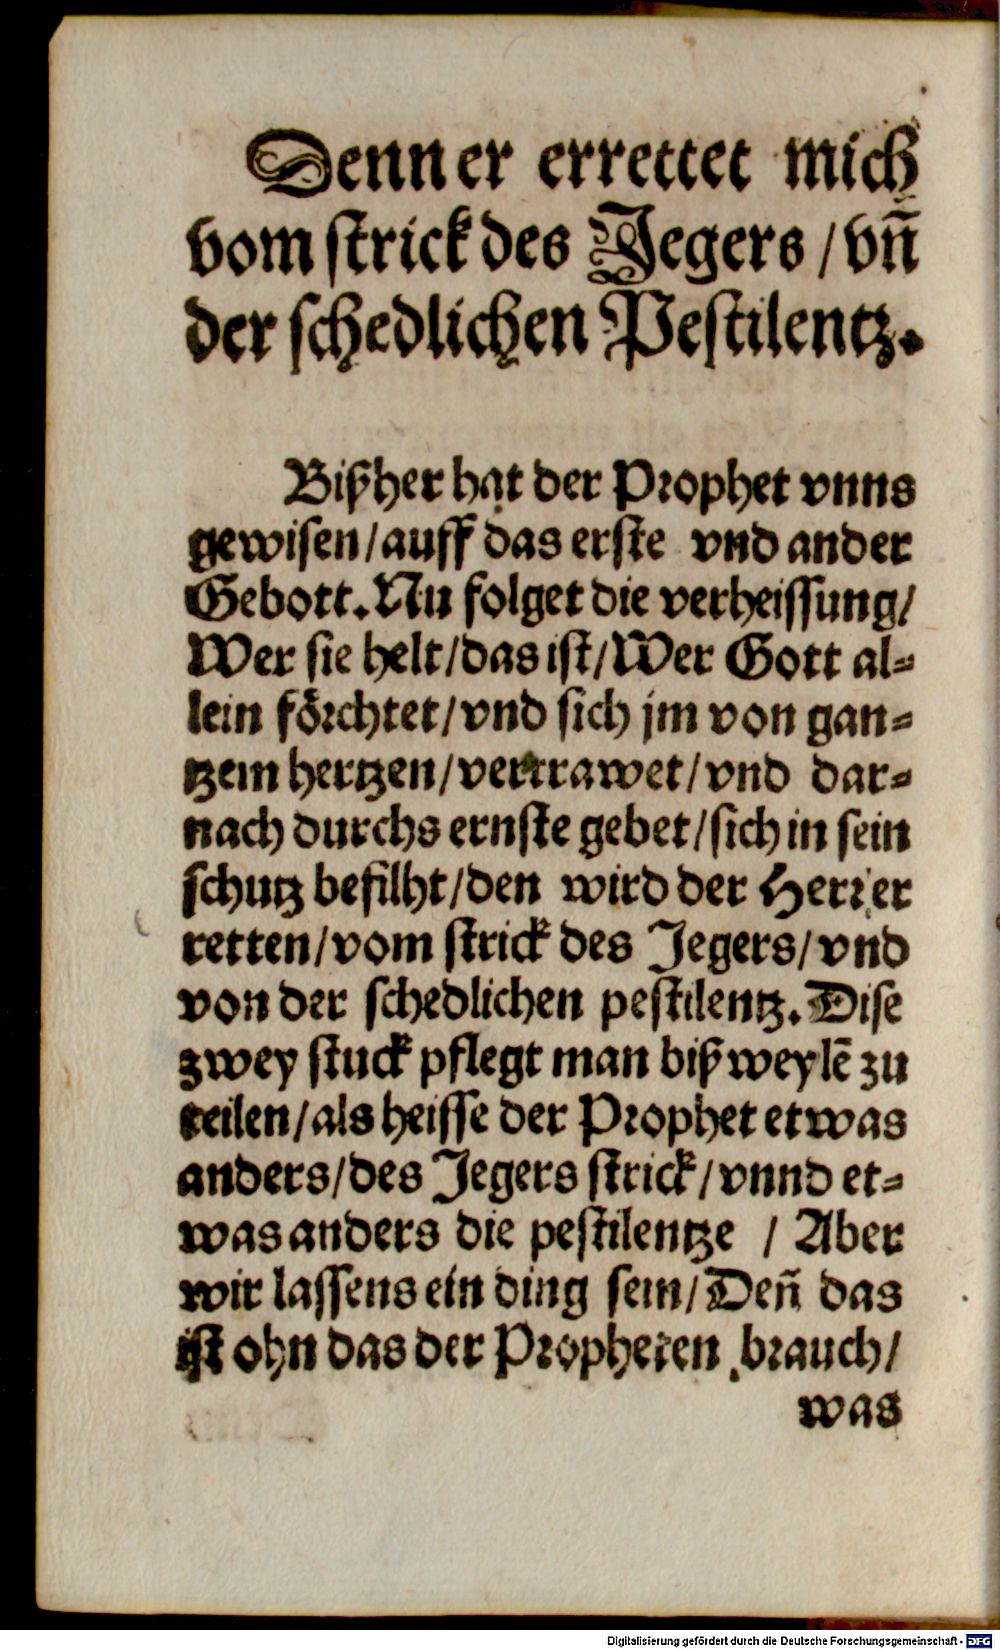 Denn er errettet mich
vom strick des Jegers / vn̄
der schedlichen Pestilentz.
Bißher hat der Prophet vnns
gewisen / auff das erste vnd ander
Gebott. Nu folget die verheissung /
Wer sie helt / das ist / Wer Gott al⸗
lein förchtet / vnd sich jm von gan⸗
tzem hertzen / vertrawet / vnd dar⸗
nach durchs ernste gebet / sich in sein
schutz befilht / den wird der Herr er
retten / vom strick des Jegers / vnd
von der schedlichen pestilentz. Dise
zwey stuck pflegt man bißweylē zu
teilen / als heisse der Prophet etwas
anders / des Jegers strick / vnnd et⸗
was anders die pestilentze / Aber
wir lassens ein ding sein / Den̄ das
ist ohn das der Propheten brauch /
was
Digitalisierung gefördert durch die Deutsche Forschungsgemeinschaft - DFG